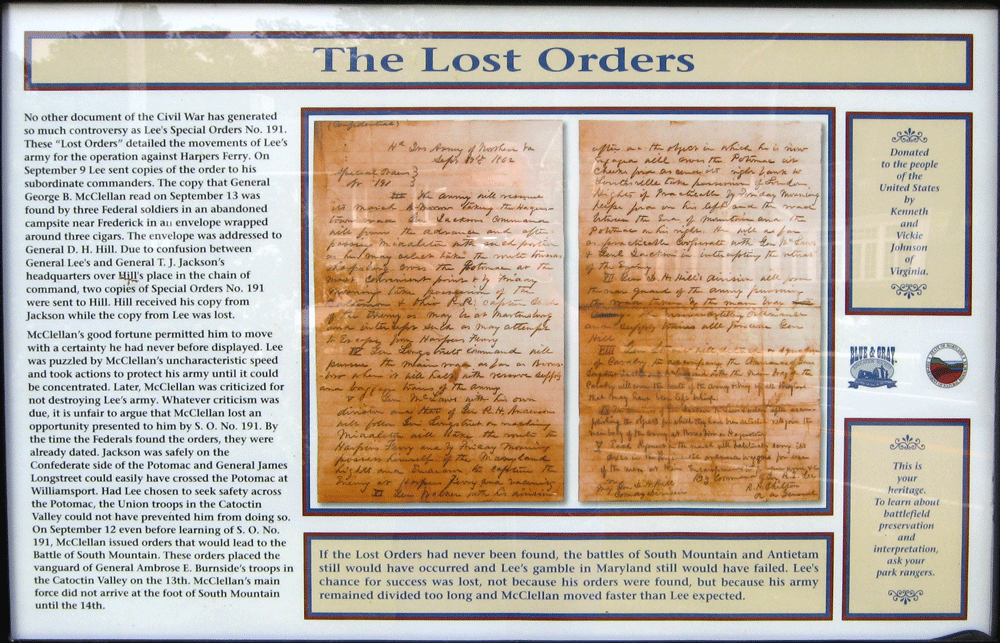 The Lost Orders
No other document of the Civil War has generated
so much controversy as Lee's Special Orders No. 191.
These "Lost Orders" detailed the movements of Lee's
army for the operation against Harpers Ferry. On
September 9 Lee sent copies of the order to his
subordinate commanders. The copy that General
George B. McClellan read on September 13 was
found by three Federal soldiers in an abandoned
campsite near Frederick in an envelope wrapped
around three cigars. The envelope was addressed to
General D. H. Hill. Due to confusion between
General Lee's and General T. J. Jackson's
headquarters over Hill's place in the chain of
command, two copies of Special Orders No. 191
were sent to Hill. Hill received his copy from
Jackson while the copy from Lee was lost.
McClellan's good fortune permitted him to move
with a certainty he had never before displayed. Lee
was puzzled by McClellan's uncharacteristic speed
and took actions to protect his army until it could
be concentrated. Later, McClellan was criticized for
not destroying Lee's army. Whatever criticism was
due, it is unfair to argue that McClellan lost an
opportunity presented to him by S. O. No. 191. By
the time the Federals found the orders, they were
already dated. Jackson was safely on the
Confederate side of the Potomac and General James
Longstreet could easily have crossed the Potomac at
Williamsport. Had Lee chosen to seek safety across
the Potomac, the Union troops in the Catoctin
Valley could not have prevented him from doing so.
On September 12 even before learning of S. O. No.
191, McClellan issued orders that would lead to the
Battle of South Mountain. These orders placed the
vanguard of General Ambrose E. Burnside's troops in
the Catoctin Valley on the 13th. McClellan's main
force did not arrive at the foot of South Mountain
until the 14th.
(Confidential)
Hd Qrs Army of Northern Va
Sept 9th 1862
Special Orders
No 191
III The Army will resume
its march
town road Gen Jacksons Command
will form the advance and after
passing Middletown with such portion
as he may select take the route towards
Sharpsburg cross the Potomac at the
most convenient point & by Friday
morning take possession of the
Ohio R.R. capture such
of the Enemy as may be at Martinsburg
and intercept such as may attempt
to Escape from Harpers Ferry
IV Gen Longstreets Command will
pursue the main road as far as Boons-
boro where it will halt, with reserve supply
and baggage trains of the army
V Gen McLaws with his own
division and that of Gen R. H. Anderson
will follow Gen Longstreet on reaching
Middletown will take the route to
Harpers Ferry and by Friday Morning
possess himself of the Maryland
heights and Endeavor to capture the
Enemy at Harpers Ferry and vicinity
VI Gen Walker with his division
after the object in which he is now
engaged will cross the Potomac at
Cheeks ford
Lovettsville take possession of Loudon
Heights if Practicable by Friday Morning
Keyes ford on his left and the road
between the End of Mountain and the
Potomac on his right. He will as far
as practicable cooperate with Gen McLaws
& Genl Jackson in intercepting the retreat
of the Enemy
VII Gen D. H Hill's division will form
the rear guard of the army pursuing
the road taken by the main body
Gen
Hill
VIII
Gen D. H. Hill
Comdg Division
By Command of Gen R. E. Lee
R. H. Chilton
If the Lost Orders had never been found, the battles of South Mountain and Antietam
still would have occurred and Lee's gamble in Maryland still would have failed. Lee's
chance for success was lost, not because his orders were found, but because his army
remained divided too long and McClellan moved faster than Lee expected.
Donated
to the people
of the
United States
by
Kenneth
and
Vickie
Johnson
of
Virginia.
BLUE & GRAY
This is
your
heritage.
To learn about
battlefield
preservation
and
interpretation,
ask your
park rangers.